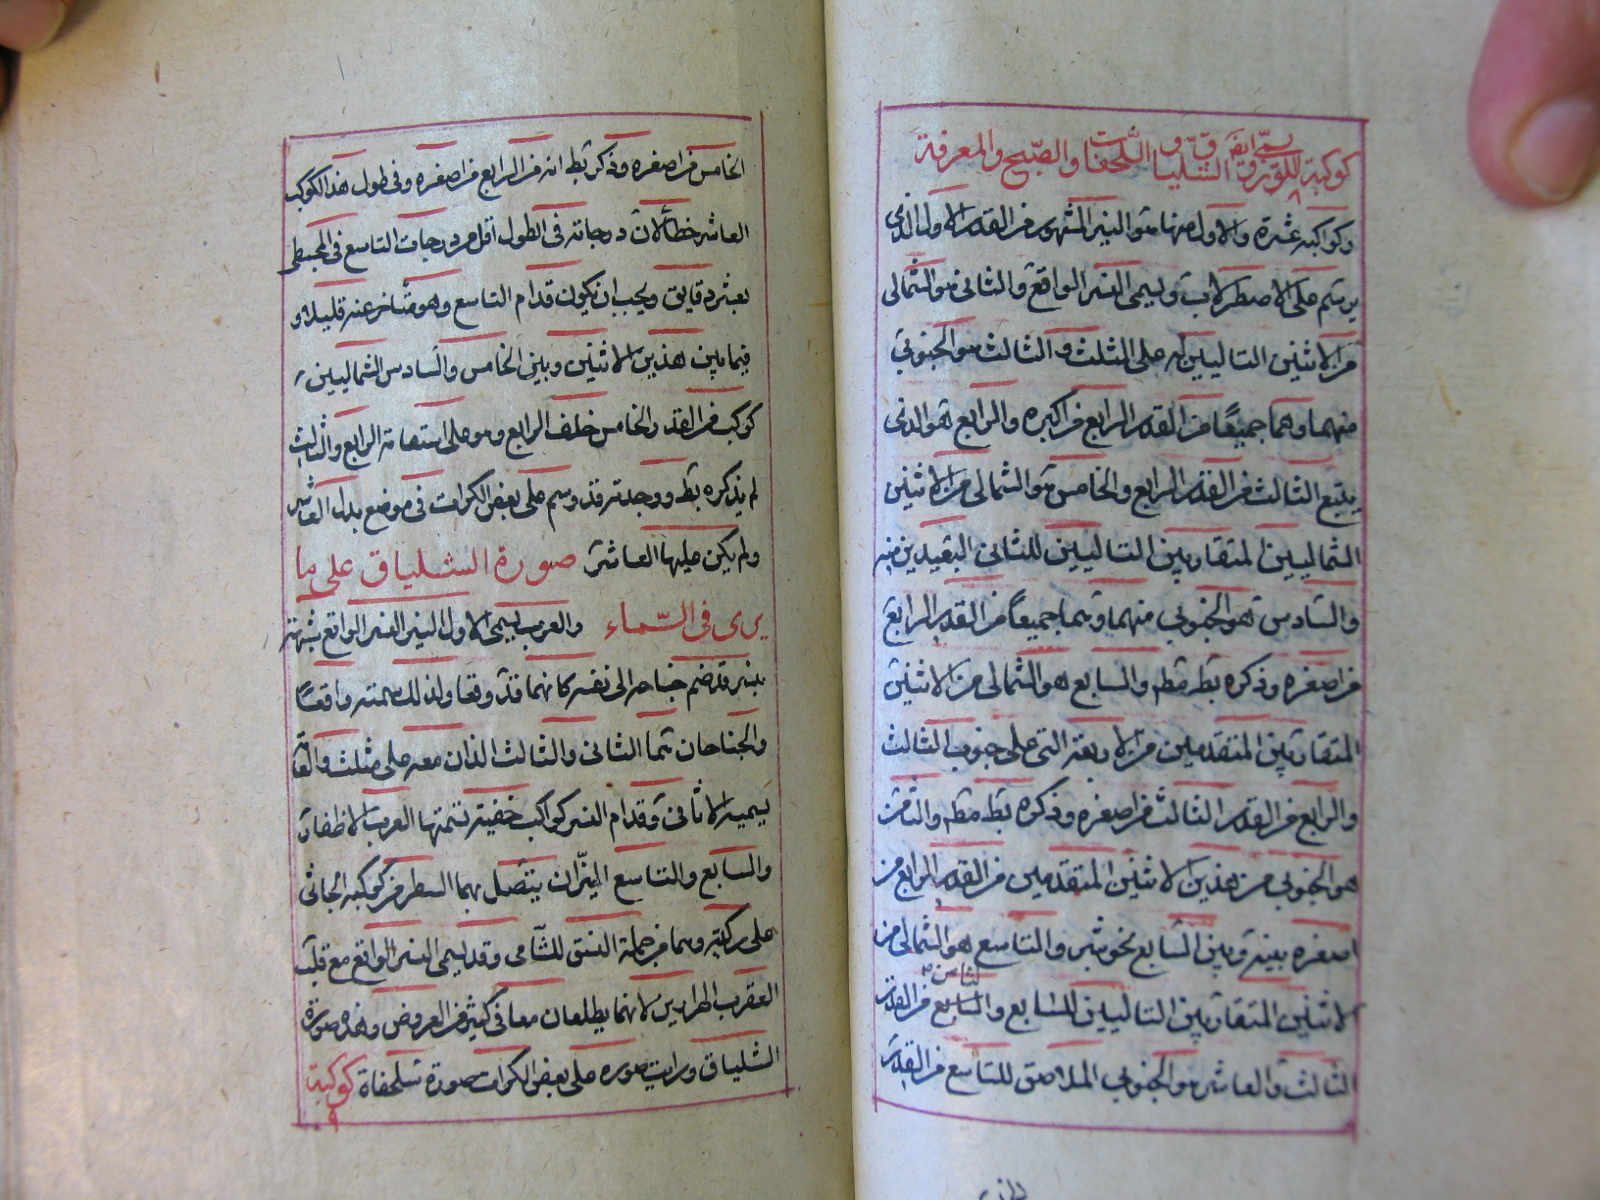 كوكبة اللورا و يسمى ايضا الشلياق والسلحفاة والصبح والمعرفة
وكواكبه عشرة والاول منها هو النير المشهور من القدر الاول الذى
يرسم على الاصطرلاب ويسمى النسر الواقع والثانى هو الشمالى
من الاثنين التاليين له على المثلث و الثالث هو الجنوبى
منهما وهما جميعًا من القدر الرابع من اكبره والرابع هو الذى
يتبع الثالث من القدر الرابع والخامس هو الشمالى من الاثنين
الشماليين المتقاربين التاليين للثانى البعيدين منه
والسادس هو الجنوبى منهما وهما جميعاً من القدر الرابع
من اصغره وذكره بط مط والسابع هو الشمالى من الاثنين
المتقاربين المتقدمين من الاربعة التى على جنوب الثالث
والرابع من القدر الثالث من اصغره وذكره بط مط والثامن
هو الجنوبى من هذين الاثنين المتقدمين من القدر الرابع من
اصغره بينه وبين السابع نحو شبر والتاسع هو الشمالى من
الاثنين المتقاربين التاليين للسابع والثامن من القدر
الثالث والعاشر هو الجنوبى الملاصق للتاسع من القدر
الخامس من اصغره وذكر بط انه من الرابع من اصغره وفى طول هذا الكوكب
العاشر خطأ لان درجاته فى الطول اقل من درجات التاسع فى المجسطى
بعشر دقايق ويجب ان يكون قدام التاسع وهو متأخر عنه قليلا و
فيما بين هذين الاثنين وبين الخامس والسادس الشماليين
كوكب من القدر الخامس خلف الرابع وهو على استقامة الرابع والثالث
لم يذكره بط ووجدته قد وسم على بعض الكرات فى موضع بدل العاشر
ولم يكن عليها العاشر صورة الشلياق على ما
يرى فى السّماء والعرب يسمى الاول النير النسر الواقع شبهته
بنسر قد ضم جناحيه الى نفسه كانهما قد وقعا ولذلك سمته واقعًا
والجناحان هما الثانى والثالث الذان معه على مثلث والعامة
يسميه الاثافى وقدام النسر كواكب خفية تسمتها العرب الاظفار
والسابع والتاسع النيّران يتصل بهما السطر من كوكبة الجاثى
على ركبتيه وهما من جملة النسق الشآمى وقد يسمى النسر الواقع مع قلب
العقرب الهرارين لانهما يطلعان معا فى كثير من العروض وهذه صورة
الشلياق ورايت صوره على بعض الكرات صورة سلحفاة كوكبة